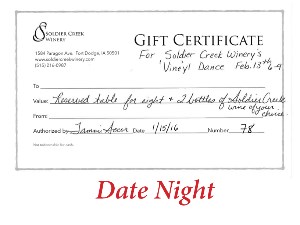 SOLDIER CREEK
WINERY
1584 Paragon Ave. Fort Dodge, IA 50501
www.soldiercreekwinery.com
(515) 216-0987
GIFT CERTIFICATE
For Soldier Creek Winery's
'Vine'yl Dance Feb. 13th 6-9
To
Value: Reserved table for eight + 2 bottles of Soldier Creek
wine of your
choice
From
Authorized by Date 1/15/16 Number 78
Not redeemable for cash.
Date Night